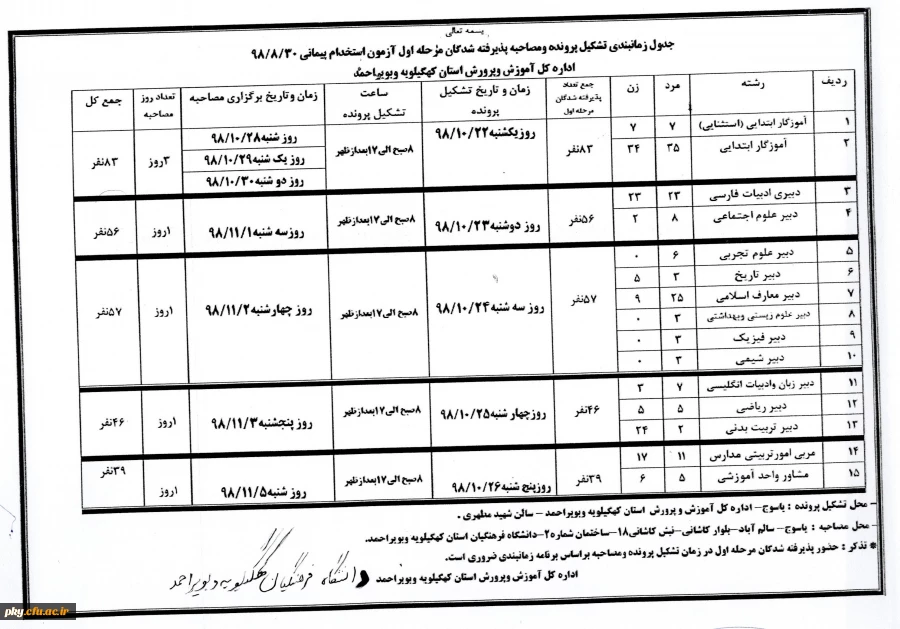 بسمه تعالی
جدول زمانبندی تشکیل پرونده ومصاحبه پذیرفته شدگان مرحله اول آزمون استخدام پیمانی ۹۸/۸/۳۰
اداره کل آموزش وپرورش استان کهگیلویه وبویراحمد
ردیف رشته مرد زن جمع تعداد پذیرفته شدگان مرحله اول زمان و تاریخ تشکیل پرونده ساعت تشکیل پرونده زمان وتاریخ برگزاری مصاحبه تعداد روز مصاحبه جمع کل
۱ آموزگار ابتدایی (استثنایی) ۷ ۷
۲ آموزگار ابتدایی ۳۵ ۳۴
۸۳نفر روزیکشنبه۹۸/۱۰/۲۲ ۸صبح الی۱۷بعدازظهر
روز شنبه۹۸/۱۰/۲۸
روز یک شنبه۹۸/۱۰/۲۹
روز دو شنبه۹۸/۱۰/۳۰
۳روز ۸۳نفر
۳ دبیری ادبیات فارسی ۲۳ ۲۳
۴ دبیر علوم اجتماعی ۸ ۲
۵۶نفر روز دوشنبه۹۸/۱۰/۲۳ ۸صبح الی۱۷بعدازظهر روزسه شنبه۹۸/۱۱/۱ ۱روز ۵۶نفر
۵ دبیر علوم تجربی ۶ ۰
۶ دبیر تاریخ ۳ ۵
۷ دبیر معارف اسلامی ۲۵ ۹
۸ دبیر علوم زیستی وبهداشتی ۳ ۰
۹ دبیر فیزیک ۳ ۰
۱۰ دبیر شیمی ۳ ۰
۵۷نفر روز سه شنبه۹۸/۱۰/۲۴ ۸صبح الی۱۷بعدازظهر روز چهارشنبه۹۸/۱۱/۲ ۱روز ۵۷نفر
۱۱ دبیر زبان وادبیات انگلیسی ۷ ۳
۱۲ دبیر ریاضی ۵ ۵
۱۳ دبیر تربیت بدنی ۲ ۲۴
۴۶نفر روزچهار شنبه۹۸/۱۰/۲۵ ۸صبح الی۱۷بعدازظهر روز پنجشنبه۹۸/۱۱/۳ ۱روز ۴۶نفر
۱۴ مربی امورتربیتی مدارس ۱۱ ۱۷
۱۵ مشاور واحد آموزشی ۵ ۶
۳۹نفر روزپنج شنبه۹۸/۱۰/۲۶ ۸صبح الی۱۷بعدازظهر روز شنبه۹۸/۱۱/۵ ۱روز ۳۹نفر
– محل تشکیل پرونده : یاسوج– اداره کل آموزش و پرورش استان کهگیلویه وبویراحمد – سالن شهید مطهری .
– محل مصاحبه : یاسوج– سالم آباد– بلوار کاشانی– نبش کاشانی۱۸–ساختمان شماره۲–دانشگاه فرهنگیان استان کهگیلویه وبویراحمد.
* تذکر : حضور پذیرفته شدگان مرحله اول در زمان تشکیل پرونده ومصاحبه براساس برنامه زمانبندی ضروری است.
اداره کل آموزش وپرورش استان کهگیلویه وبویراحمد و دانشگاه فرهنگیان کهگیلویه و بویراحمد
pky.cfu.ac.ir